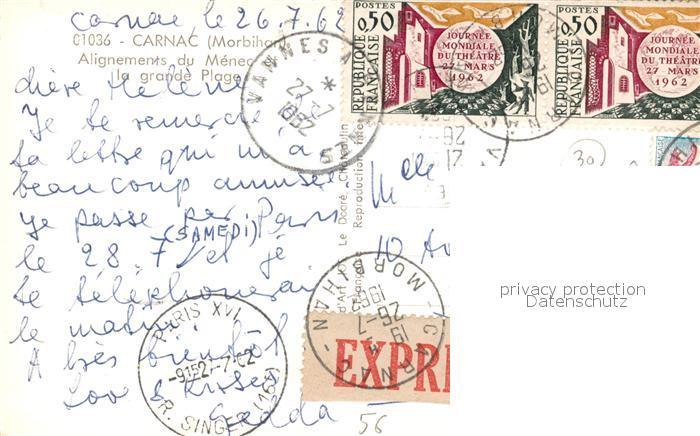 Carnac le 26.7.62
01036 - CARNAC (Morbiha
Alignements du Ménec
la grande Plage
chère Hélène
Je te remercie
ta lettre qui m'a
beaucoup amusée
Je passe par Paris
(SAMEDI)
le 28.7 et je
te téléphonerai
le matin
A bientôt
Love & Kisses
VANNES
27-7
1962
POSTES
0,50
RÉPUBLIQUE
FRANÇAISE
JOURNÉE
MONDIALE
DU THÉÂTRE
27 MARS
1962
POSTES
0,50
RÉPUBLIQUE
FRANÇAISE
JOURNÉE
MONDIALE
DU THÉÂTRE
27 MARS
1962
30
Mlle
10 Av
d'Art Le Doaré, Chateaulin
Reproduction
CARNAC
MORBIHAN
19
26-7
1962
EXPRE
PARIS XVI
27-7-62
R. SINGER (16e)
56
privacy protection
Datenschutz